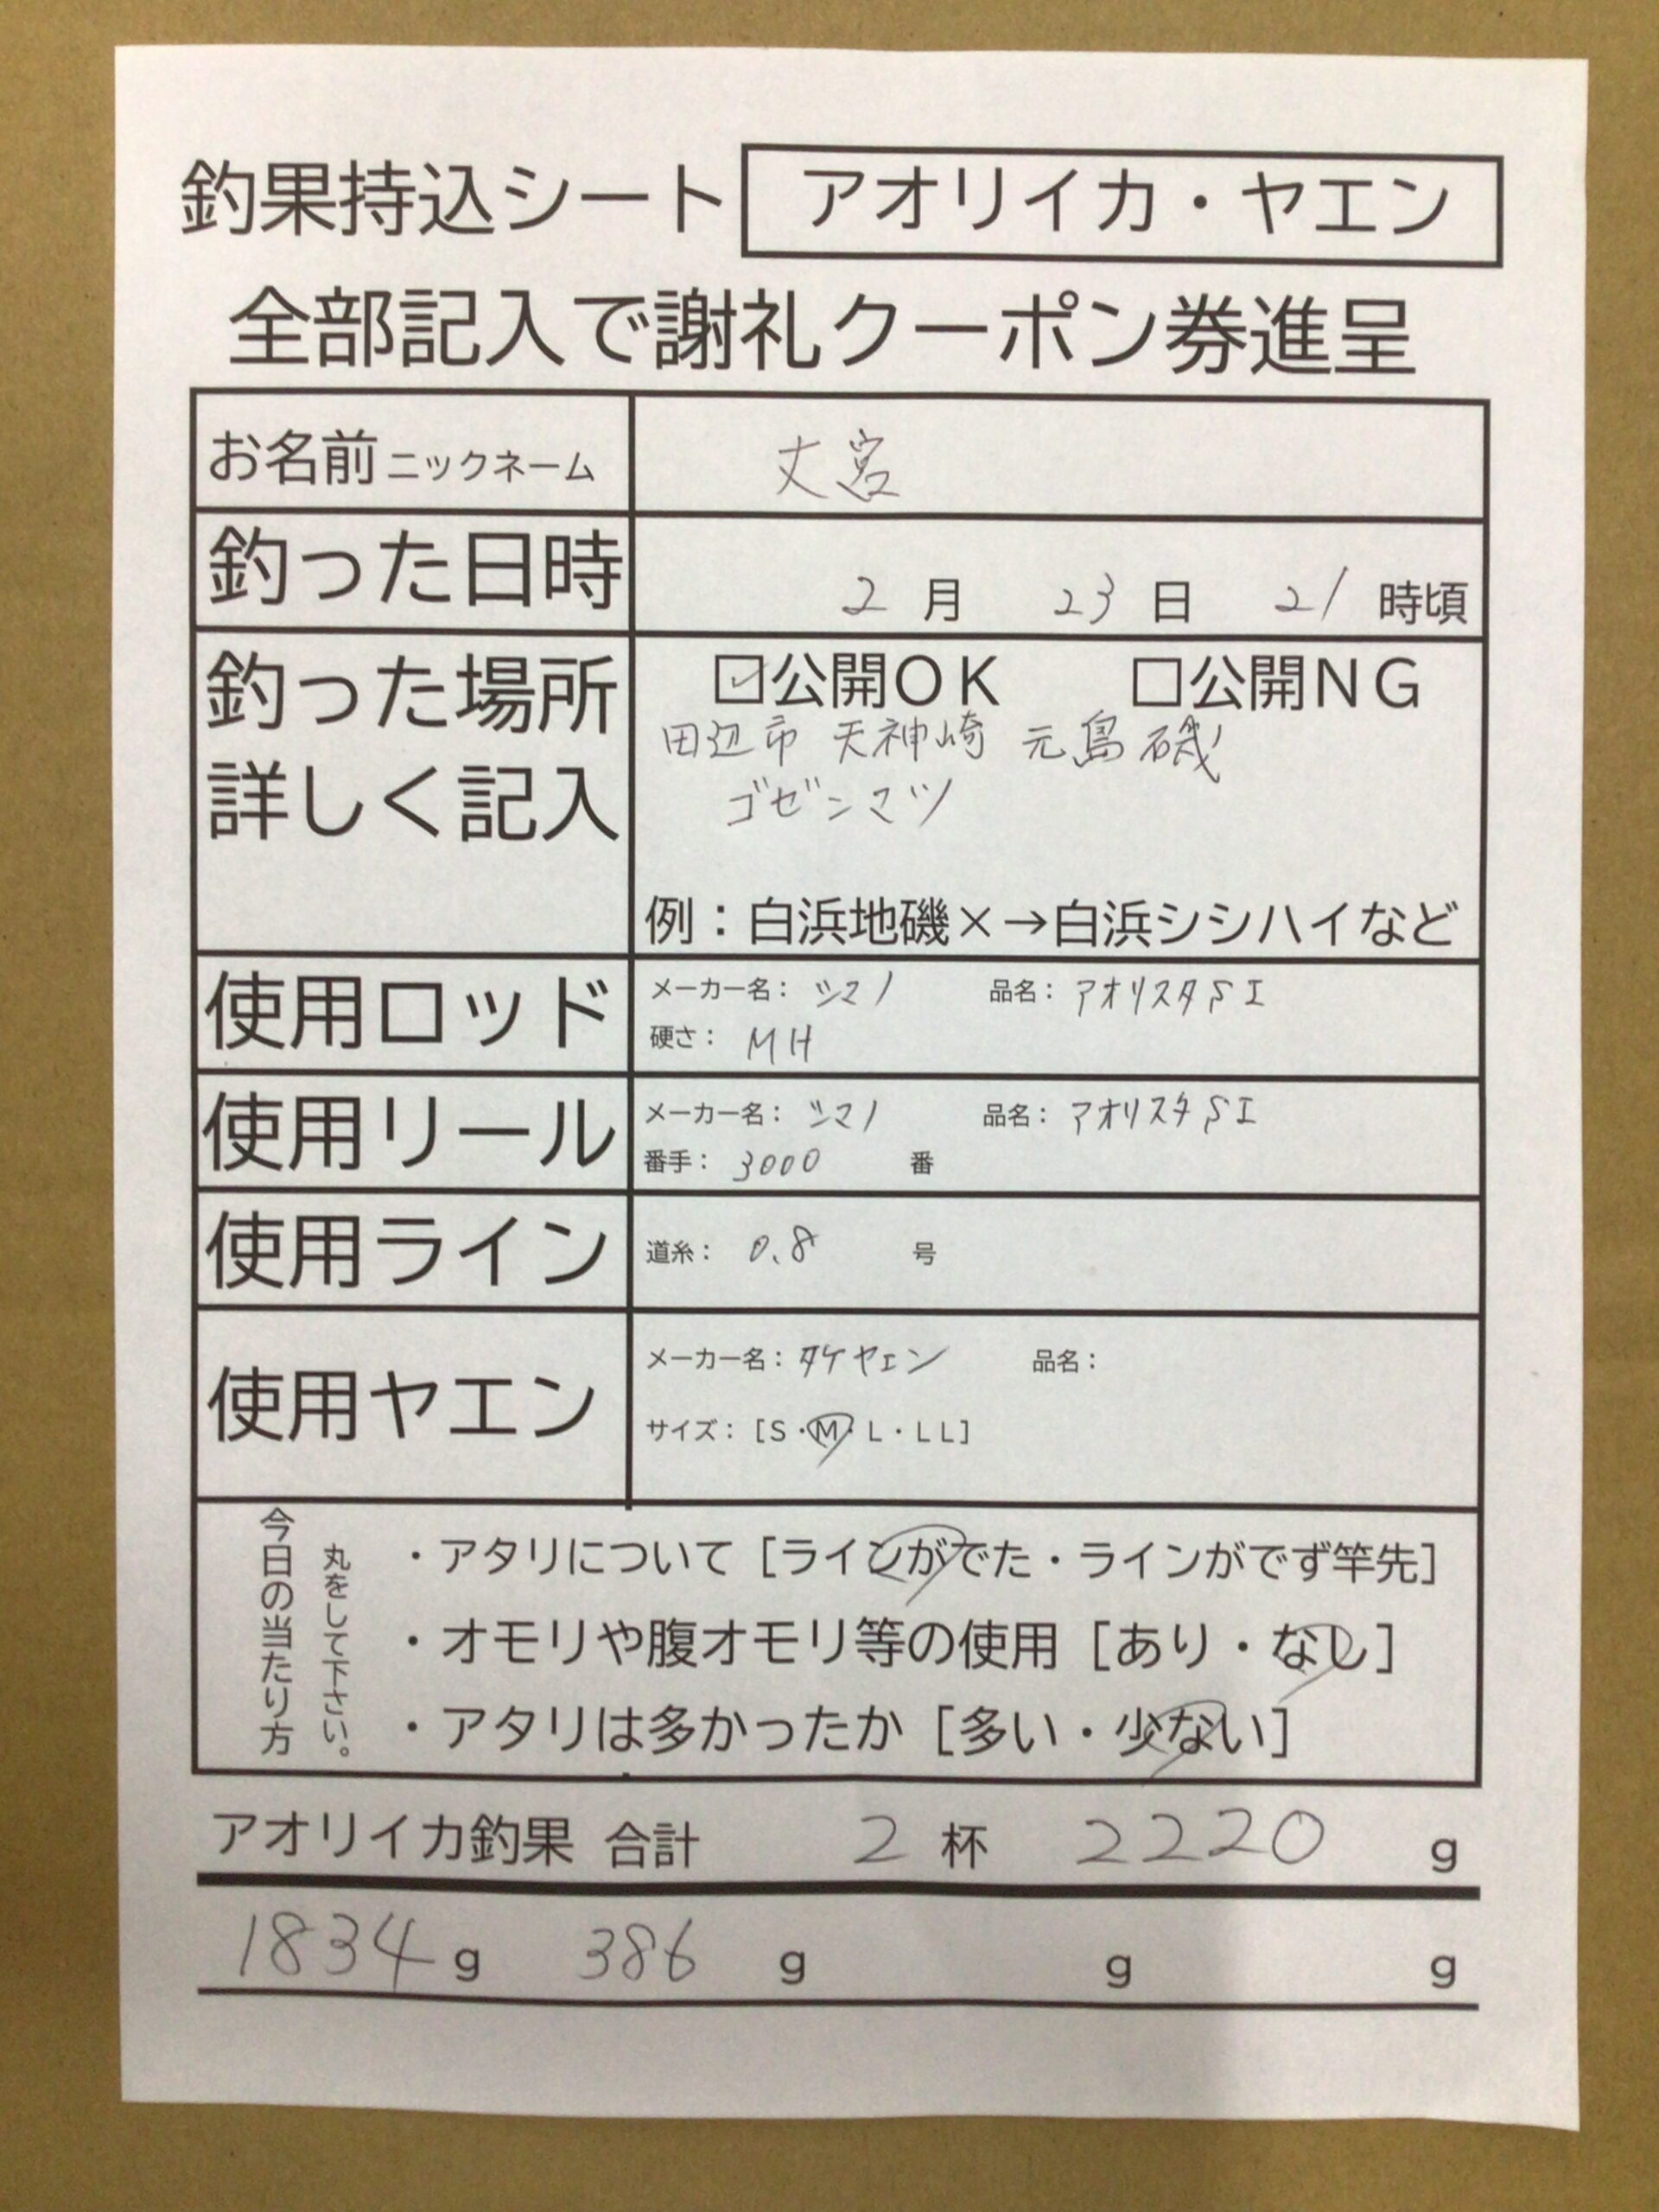 釣果持込シート アオリイカ・ヤエン
全部記入で謝礼クーポン券進呈
お名前 ニックネーム 丈宮
釣った日時 2 月 23 日 21 時頃
釣った場所 ☑公開OK □公開NG
田辺市 天神崎 元島 磯
詳しく記入 ゴゼンマツ
例：白浜地磯×→白浜シシハイなど
使用ロッド メーカー名： シマノ 品名： アオリスタSI
硬さ： MH
使用リール メーカー名： シマノ 品名： アオリスタSI
番手： 3000 番
使用ライン 道糸： 0.8 号
使用ヤエン メーカー名： タイヤエン 品名：
サイズ：[S・M・L・LL]
今日の当たり方
丸をして下さい。
・アタリについて［ラインがでた・ラインがでず竿先］
・オモリや腹オモリ等の使用［あり・なし］
・アタリは多かったか［多い・少ない］
アオリイカ釣果 合計 2 杯 2220 g
1834 g 386 g g g